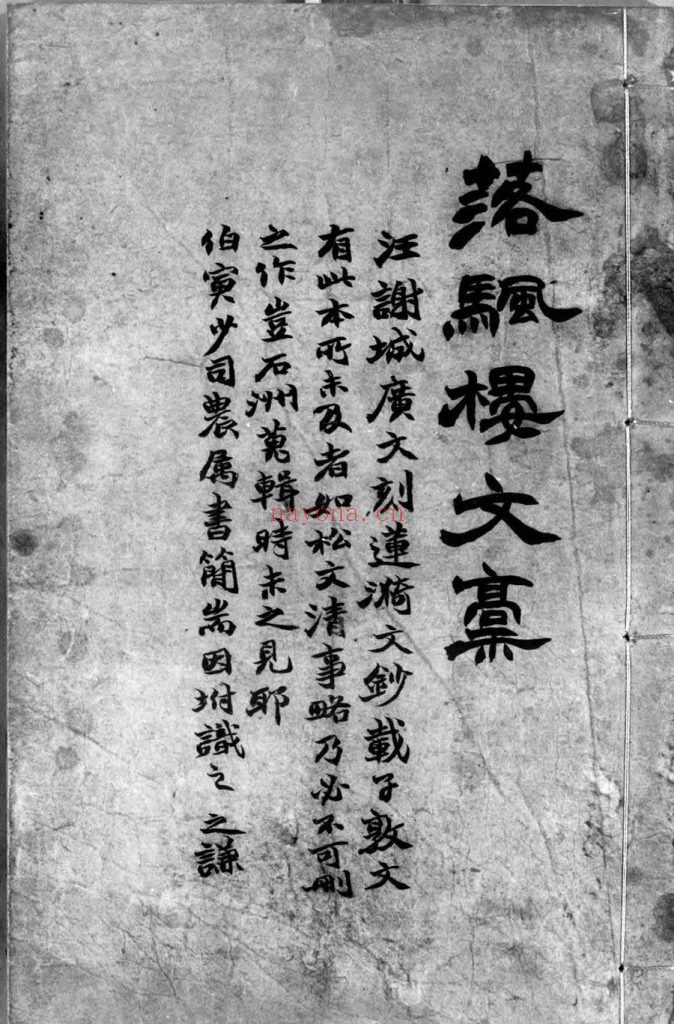 落颿樓文稾
汪謝城廣文刻蓮漪文鈔載子敦文
有此本所未及者如松文清事略乃必不可刪
之作豈石州蒐輯時未之見耶
伯寅少司農属書簡耑因坿識之 之謙
nayona.cn